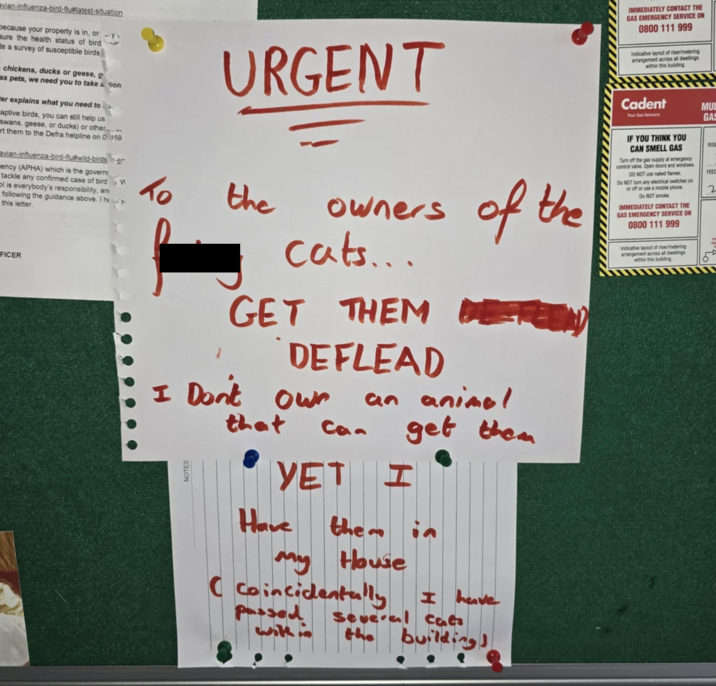 avian-influenza-bird-flu#latest-situation
because your property is in, or
sure the health status of bird
te a survey of susceptible birds
chickens, ducks or geese,
as pets, we need you to take
er explains what you need to
aptive birds, you can still help us
swans, geese, or ducks) or other
rt them to the Defra helpline on
avian-influenza-bird-flu#wild-birds
ency (APHA) which is the
tackle any confirmed case of bird
ol is everybody's responsibility, and
following the guidance above. I
this letter.
FICER
URGENT
To the owners of the
cats...
GET THEM
DEFLEAD
I Don't own an animal
that can get them
NOTES
YET I
Have them in
my House
( Coincidentally I have
passed several cats
within the building)
IMMEDIATELY CONTACT THE
GAS EMERGENCY SERVICE ON
0800 111 999
Indicative layout of riser/metering
arrangement across all dwellings
within this building.
Cadent
Your Gas Network
MU
GAS
IF YOU THINK YOU
CAN SMELL GAS
Turn off the gas supply at emergency
control valve. Open doors and windows.
DO NOT use naked flames.
Do NOT turn any electrical switches on
or off or use a mobile phone.
Do NOT smoke.
IMMEDIATELY CONTACT THE
GAS EMERGENCY SERVICE ON
0800 111 999
Indicative layout of riser/metering
arrangement across all dwellings
within this building.